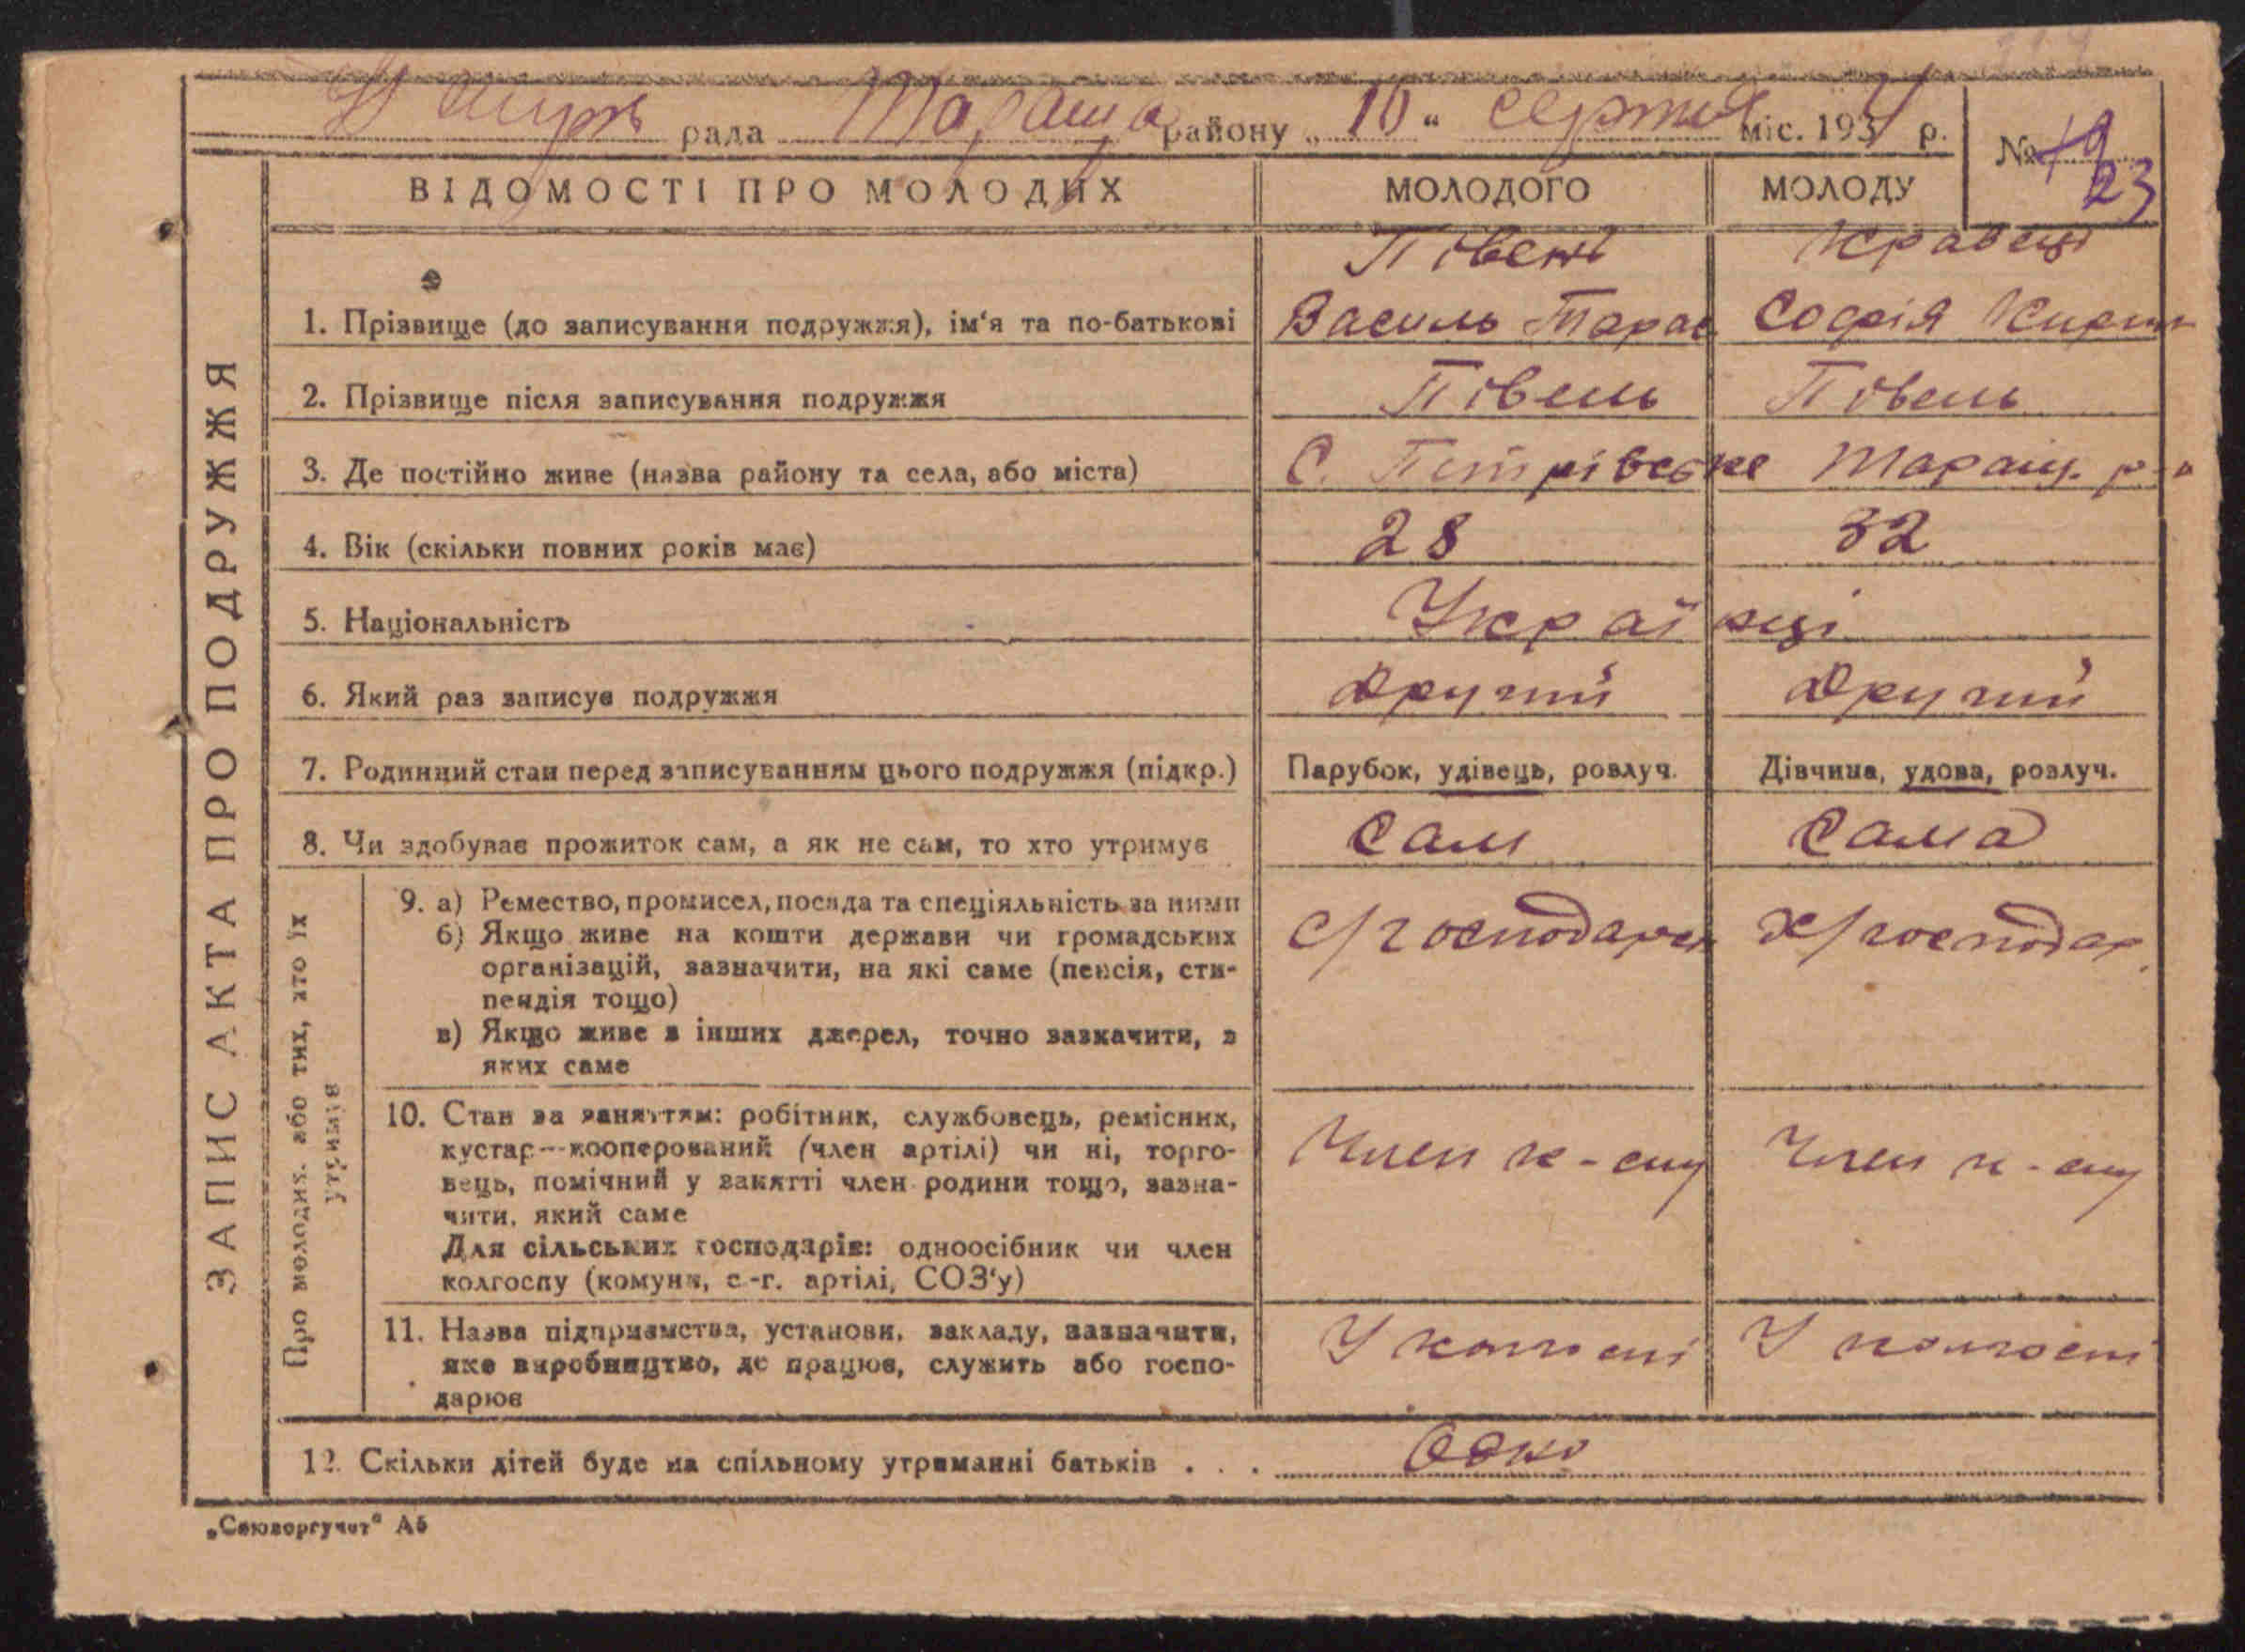 рада Тараща району „10“ серпня міс. 1934 р.
№ 19
23
ВІДОМОСТІ ПРО МОЛОДИХ МОЛОДОГО МОЛОДУ
ЗАПИС АКТА ПРО ПОДРУЖЖЯ
Півень Кравець
1. Прізвище (до записування подружжя), ім‘я та по-батькові Василь Тарас Софія
2. Прізвище після записування подружжя Півень Півень
3. Де постійно живе (назва району та села, або міста) С. Петрівське Таращ. р-н
4. Вік (скільки повних років має) 28 32
5. Національність Українці
6. Який раз записує подружжя Другий Другий
7. Родинний стан перед записуванням цього подружжя (підкр.) Парубок, удівець, розлуч. Дівчина, удова, розлуч.
8. Чи здобуває прожиток сам, а як не сам, то хто утримує Сам Сама
Про молодих, або тих, хто їх
утримує
9. а) Ремество, промисел, посада та спеціяльність за ними
б) Якщо живе на кошти держави чи громадських с/господарст х/господар
організацій, зазначити, на які саме (пенсія, сти-
пендія тощо)
в) Якщо живе з інших джерел, точно зазначити, з
яких саме
10. Стан за заняттям: робітник, службовець, ремісник,
кустар--кооперований (член артілі) чи ні, торго- Член к-спу Член к-спу
вець, помічний у занятті член родини тощо, зазна-
чити, який саме
Для сільських господарів: одноосібник чи член
колгоспу (комуни, с.-г. артілі, СОЗ‘у)
11. Назва підприємства, установи, закладу, зазначити, У колгоспі У колгоспі
яке виробництво, де працює, служить або госпо-
дарює
12. Скільки дітей буде на спільному утриманні батьків . . . Одно
„Союзоргучет“ А5